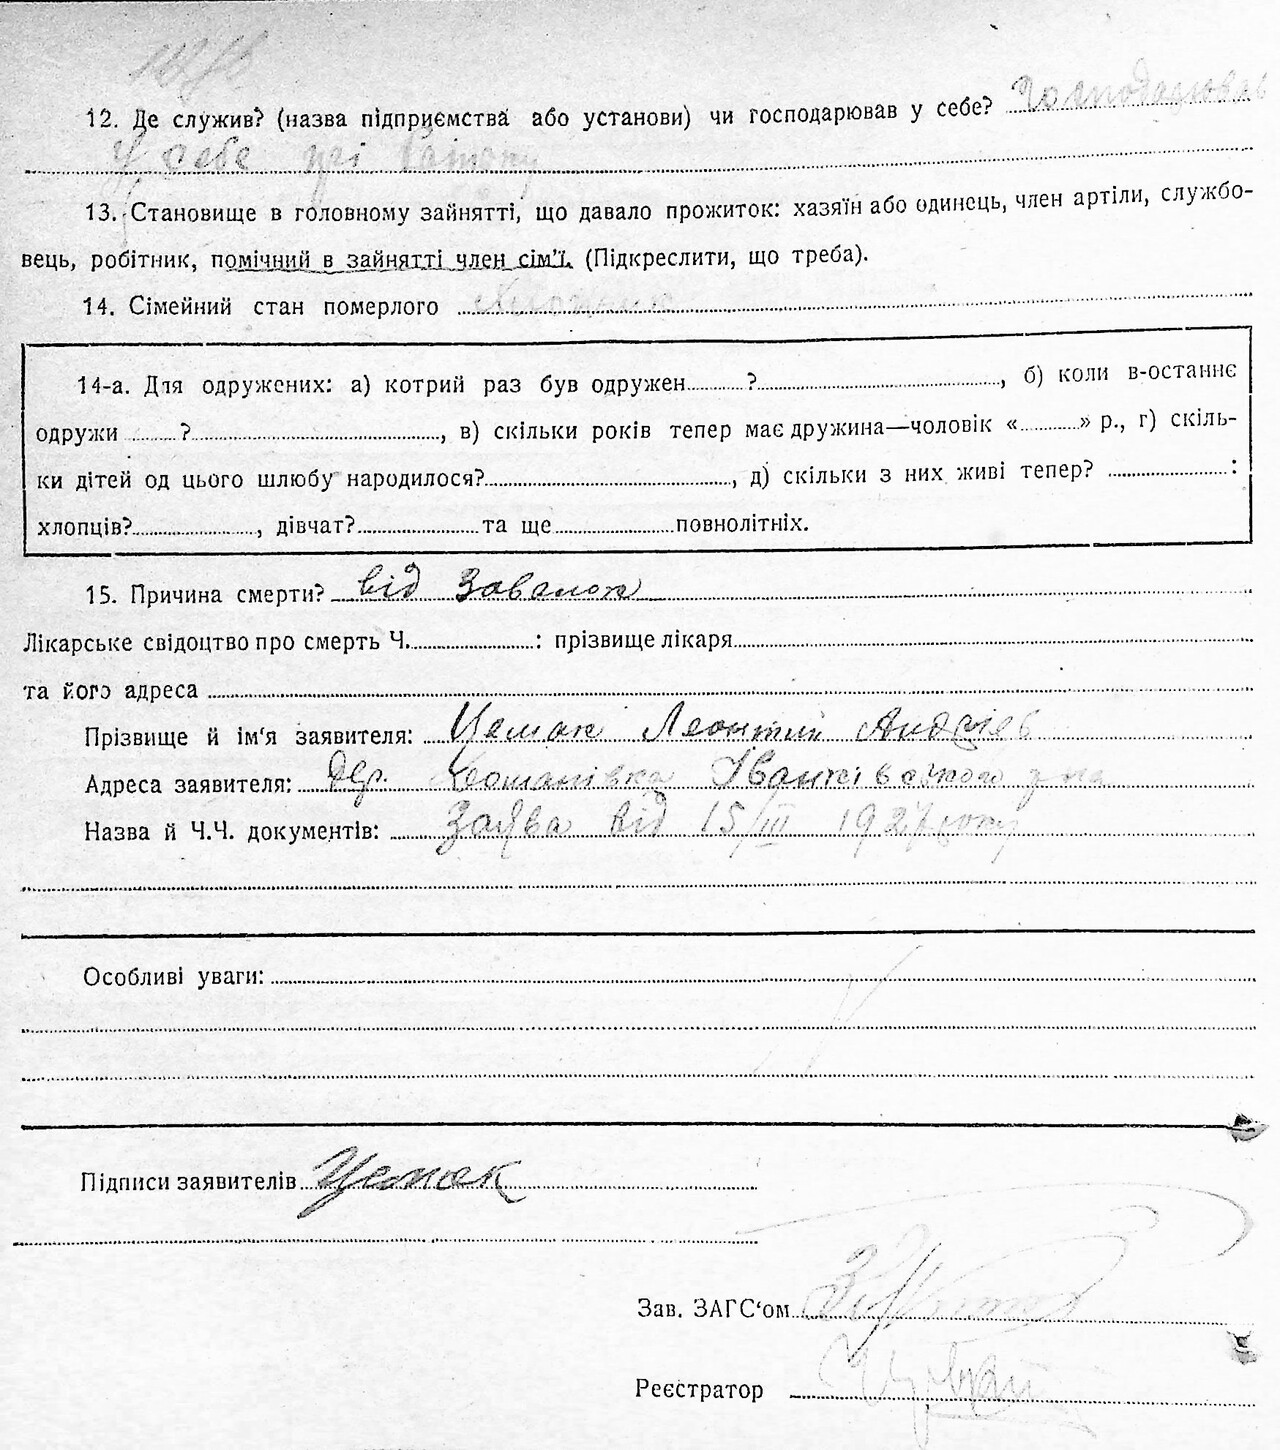 12. Де служив? (назва підприємства або установи) чи господарював у себе? Господарював
у себе при батьку
13. Становище в головному зайнятті, що давало прожиток: хазяїн або одинець, член артіли, службо-
вець, робітник, помічний в зайнятті член сім'ї. (Підкреслити, що треба).
14. Сімейний стан померлого
14-а. Для одружених: а) котрий раз був одружен ? , б) коли в-останнє
одружи ? , в) скільки років тепер має дружина—чоловік « » р., г) скіль-
ки дітей од цього шлюбу народилося? , д) скільки з них живі тепер? :
хлопців? , дівчат? та ще повнолітніх.
15. Причина смерти? від
Лікарське свідоцтво про смерть Ч. : прізвище лікаря
та його адреса
Прізвище й ім'я заявителя: Цемак Леонтий Андріев
Адреса заявителя: дер.
Назва й Ч.Ч. документів: Заява від 15/III 1927 року
Особливі уваги:
Підписи заявителів Цемак
Зав. ЗАГС'ом
Реєстратор